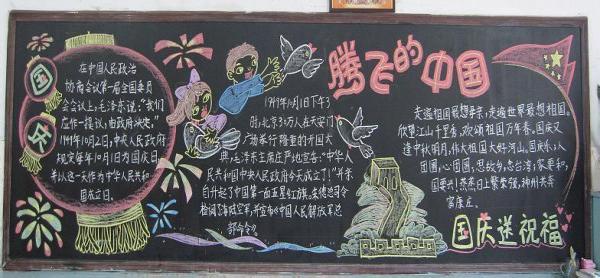 国
庆
在中国人民政治
协商会议第一届全国委员
会会议上,毛泽东说:"我们
应作一提议,由政府决定,"
1949年10月2日,中央人民政府
规定每年10月1日为国庆日
并以这一天作为中华人民共和
国成立日。
1949年10月1日下午3
时,北京30万人在天安门
广场举行隆重的开国大
典,毛泽东主席庄严地宣告:"中华人
民共和国中央人民政府今天成立了!"并亲
自升起了中国第一面五星红旗。朱德总司令
检阅了海陆空军,并宣布《中国人民解放军总
部命令》
腾飞的中国
走遍祖国最想导亲,走遍世界最想祖国。
欣望江山千里秀,欢颂祖国万年春。国庆又
逢中秋明月,伟大祖国大好河山。国庆乐,人
团圆,心团圆,思故乡,念台湾,家要和,
国要兴!蒸蒸日上繁荣强,神州共奔
富康庄。
国庆送祝福